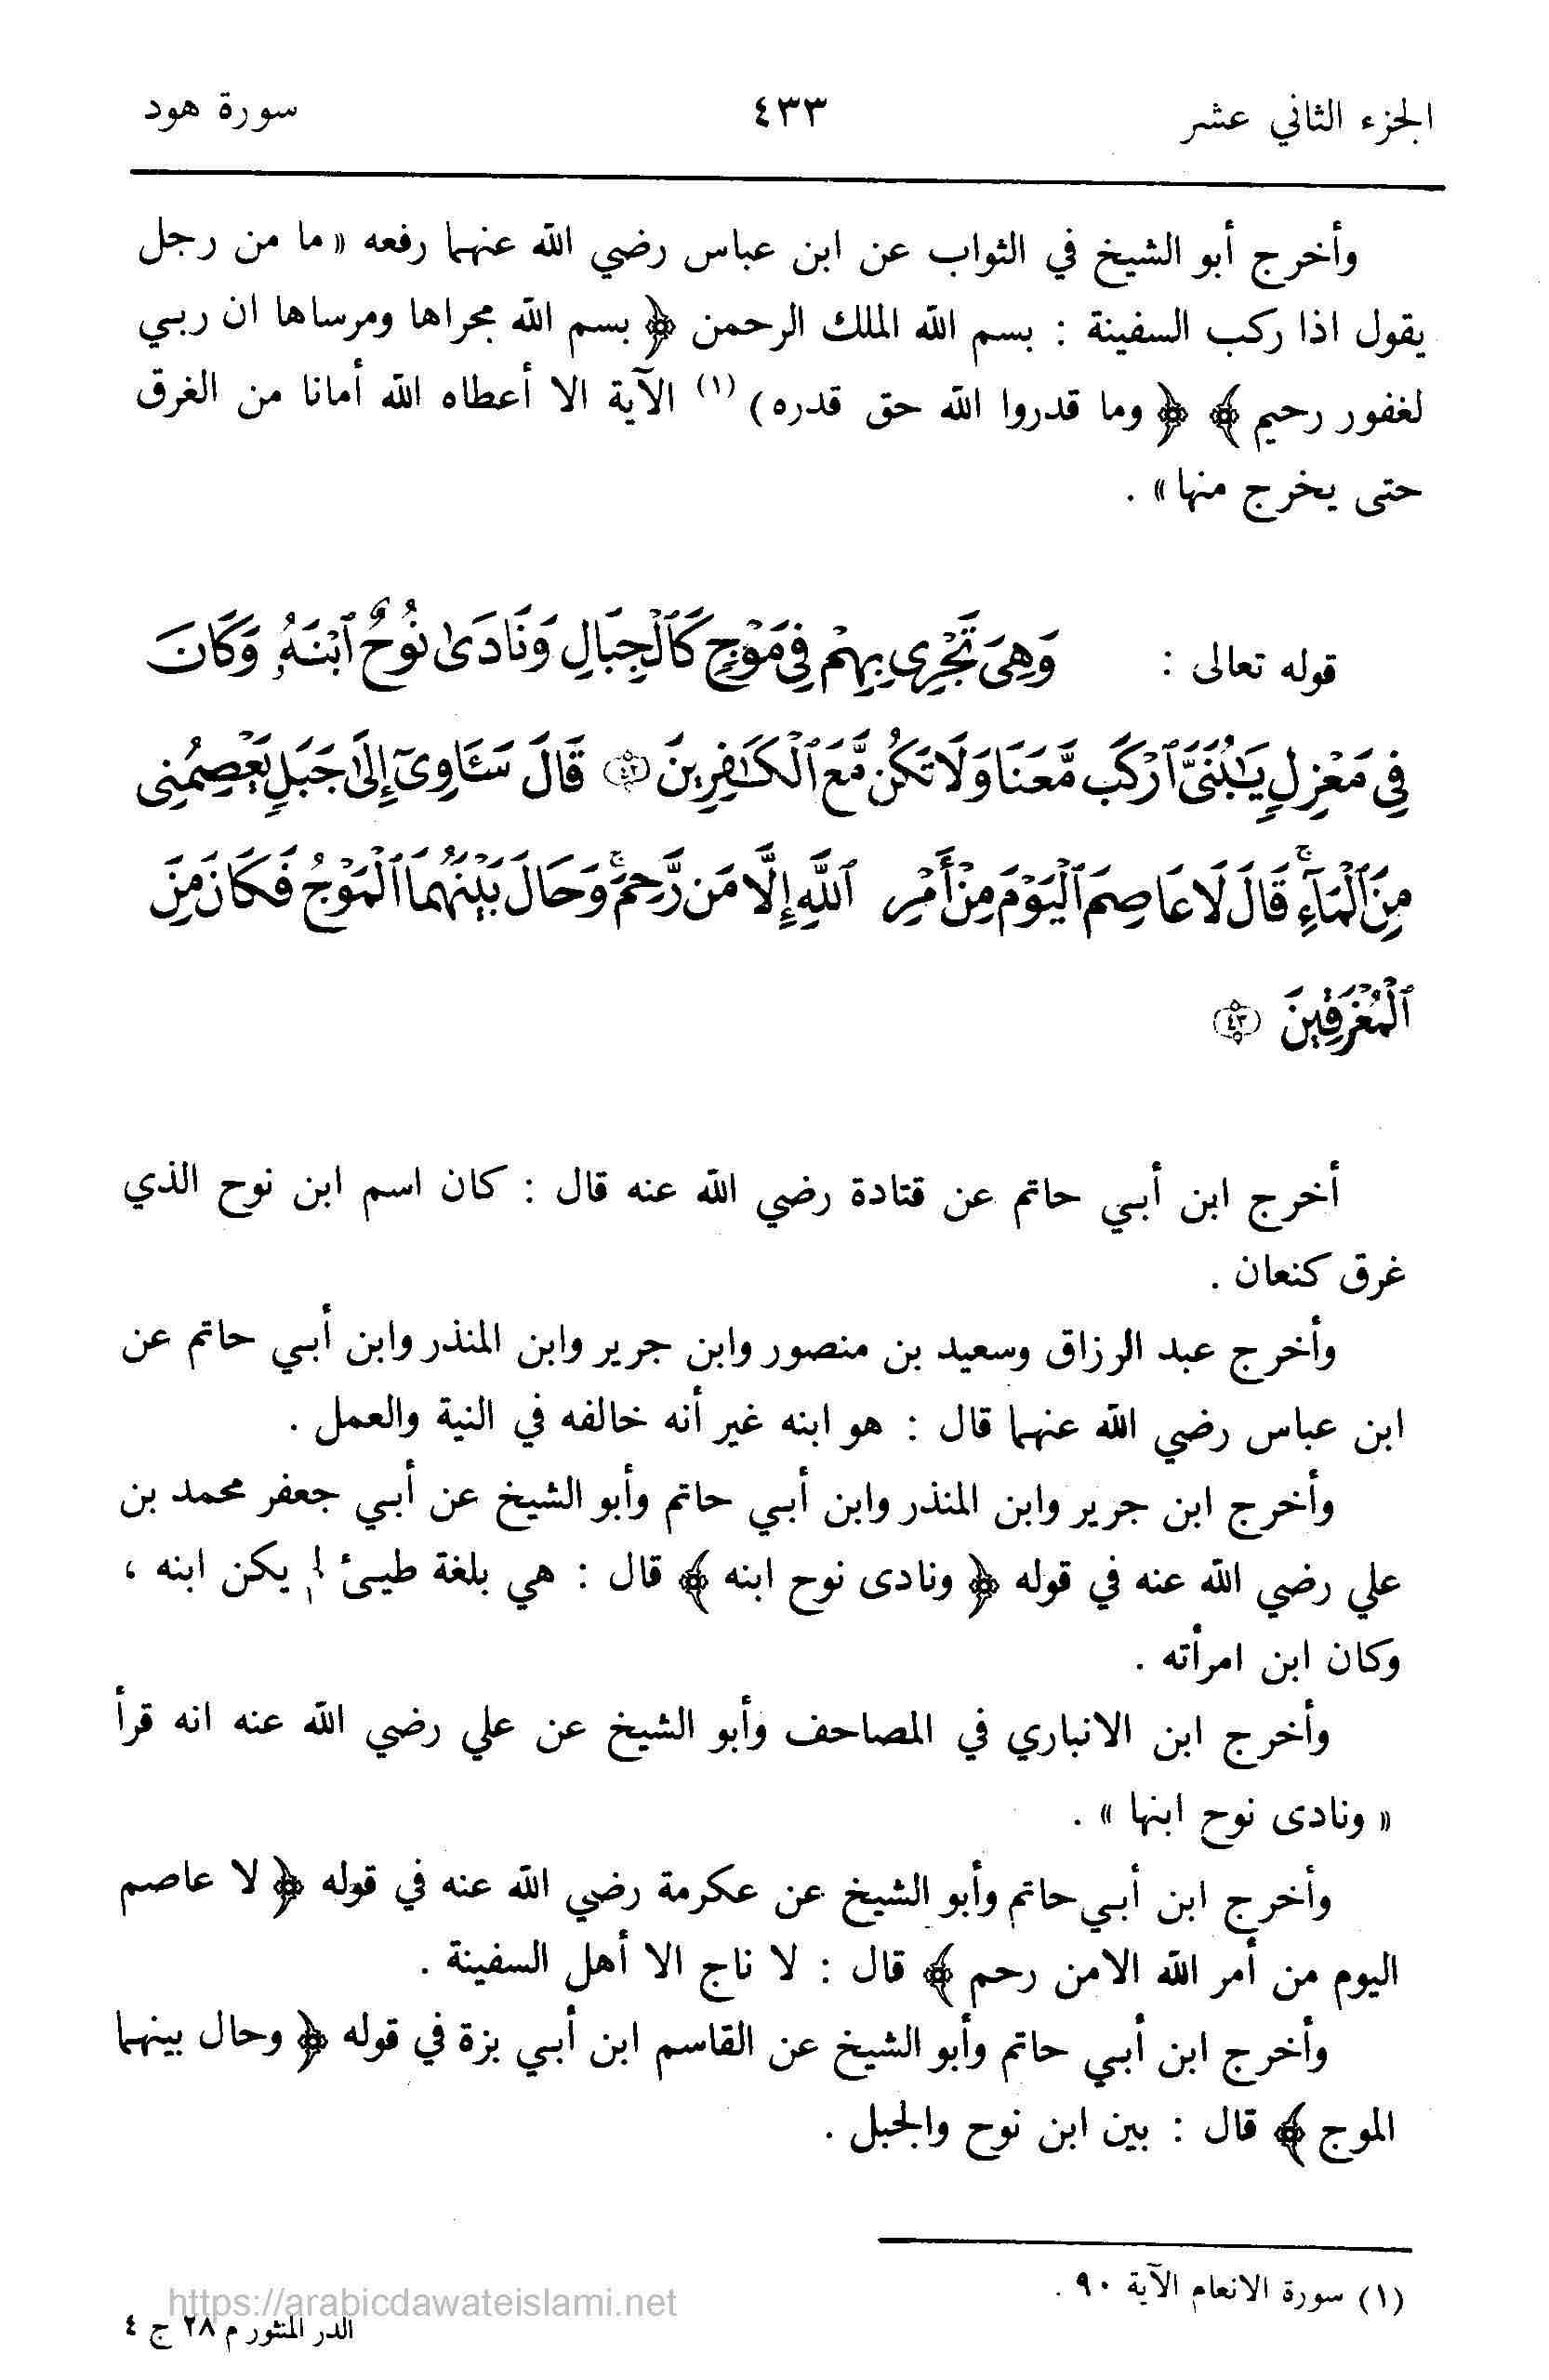 الجزء الثاني عشر ٤٣٣ سورة هود
وأخرج أبو الشيخ في الثواب عن ابن عباس رضي الله عنهما رفعه « ما من رجل
يقول اذا ركب السفينة : بسم الله الملك الرحمن ﴿ بسم الله مجراها ومرساها ان ربي
لغفور رحيم ﴾ ﴿ وما قدروا الله حق قدره ) (١) الآية الا أعطاه الله أمانا من الغرق
حتى يخرج منها » .
قوله تعالى : وَهِىَ تَجْرِى بِهِمْ فِى مَوْجٍ كَٱلْجِبَالِ وَنَادَىٰ نُوحٌ ٱبْنَهُۥ وَكَانَ
فِى مَعْزِلٍ يَـٰبُنَىَّ ٱرْكَب مَّعَنَا وَلَا تَكُن مَّعَ ٱلْكَـٰفِرِينَ ٤٢ قَالَ سَـَٔاوِىٓ إِلَىٰ جَبَلٍ يَعْصِمُنِى
مِنَ ٱلْمَآءِ ۚ قَالَ لَا عَاصِمَ ٱلْيَوْمَ مِنْ أَمْرِ ٱللَّهِ إِلَّا مَن رَّحِمَ ۚ وَحَالَ بَيْنَهُمَا ٱلْمَوْجُ فَكَانَ مِنَ
ٱلْمُغْرَقِينَ ٤٣
أخرج ابن أبي حاتم عن قتادة رضي الله عنه قال : كان اسم ابن نوح الذي
غرق كنعان .
وأخرج عبد الرزاق وسعيد بن منصور وابن جرير وابن المنذر وابن أبي حاتم عن
ابن عباس رضي الله عنهما قال : هو ابنه غير أنه خالفه في النية والعمل .
وأخرج ابن جرير وابن المنذر وابن أبي حاتم وأبو الشيخ عن أبي جعفر محمد بن
علي رضي الله عنه في قوله ﴿ ونادى نوح ابنه ﴾ قال : هي بلغة طيئ لم يكن ابنه ،
وكان ابن امرأته .
وأخرج ابن الانباري في المصاحف وأبو الشيخ عن علي رضي الله عنه انه قرأ
« ونادى نوح ابنها » .
وأخرج ابن أبي حاتم وأبو الشيخ عن عكرمة رضي الله عنه في قوله ﴿ لا عاصم
اليوم من أمر الله الامن رحم ﴾ قال : لا ناج الا أهل السفينة .
وأخرج ابن أبي حاتم وأبو الشيخ عن القاسم ابن أبي بزة في قوله ﴿ وحال بينهما
الموج ﴾ قال : بين ابن نوح والجبل .
(١) سورة الانعام الآية ٩٠ .
https://arabicdawateislami.net
الدر المنثور م ٢٨ ج ٤